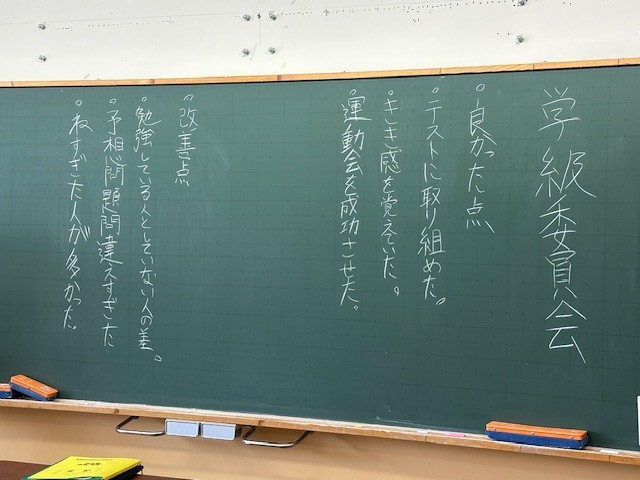 学級委員会
・良かった点
・テストに取り組めた。
・きき感を覚えていた。
・運動会を成功させた。
・改善点
・勉強している人としていない人の差。
・予想問題間違えすぎた
・ねすぎた人が多かった。